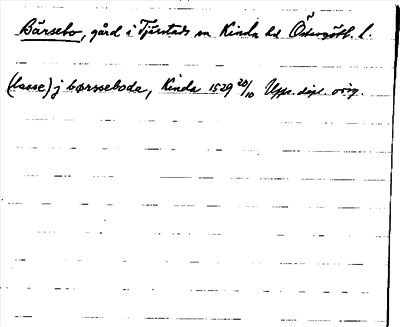 Bärsebo, gård i Tjärstads sn Kinda hd Östergötl. l.
(lasse) j børsseboda, Kinda 1529 20/10 Upps. dipl. orig.